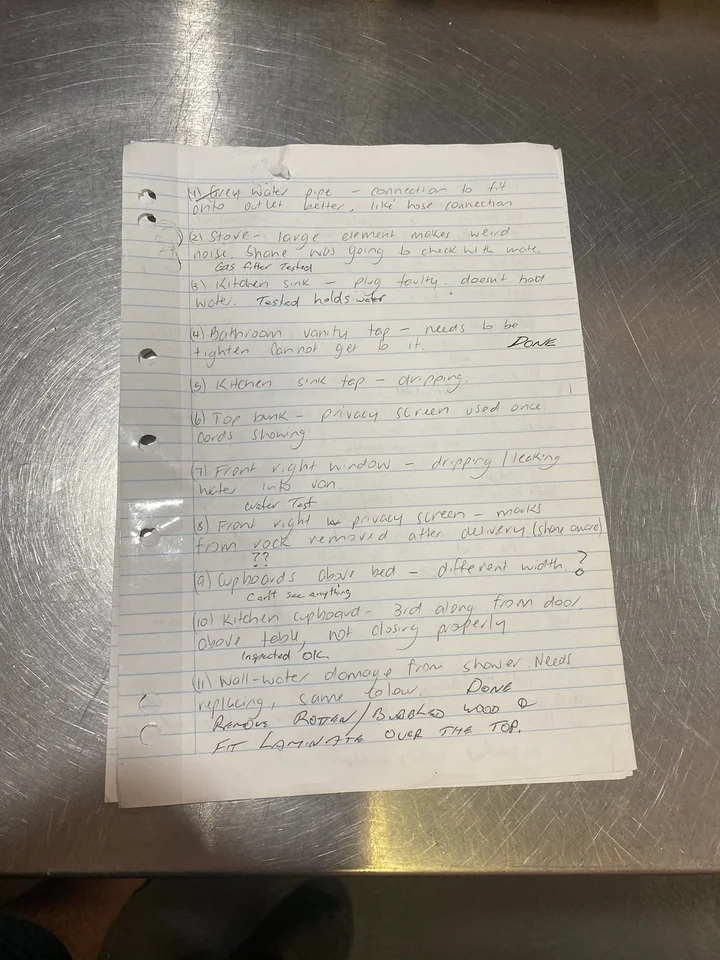 (1) Grey water pipe - connection to fit
onto outlet better, like hose connection
(2) Stove - large element makes weird
noise. Shane was going to check with mate
Gas fitter Tested
(3) Kitchen sink - plug faulty. doesnt hold
water. Tested holds water
(4) Bathroom vanity tap - needs to be
tighten Cannot get to it. DONE
(5) Kitchen sink tap - dripping.
(6) Top bunk - privacy screen used once
Cords showing
(7) Front right window - dripping / leaking
water into van.
Water Test
(8) Front right privacy screen - marks
from rock removed after delivery (Shane aware)
??
(9) Cupboards above bed - different width. ?
Can't see anything
(10) Kitchen cupboard - 3rd along from door
above table, not closing properly
Inspected OK
(11) Wall-water damage from shower Needs
replacing, same colour. DONE
REMOVE ROTTEN/BUBBLED WOOD &
FIT LAMINATE OVER THE TOP.